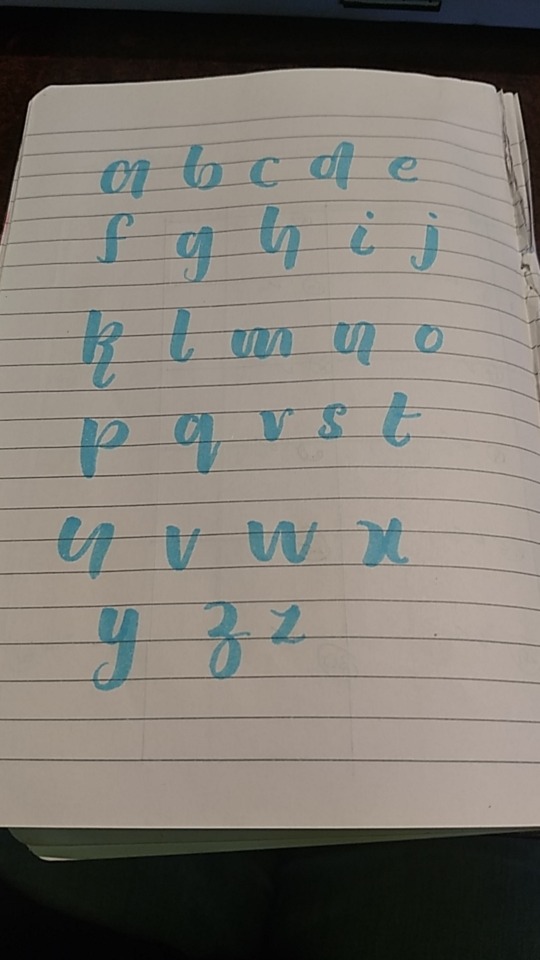 a b c d e
f g h i j
k l m n o
p q r s t
u v w x
y z z